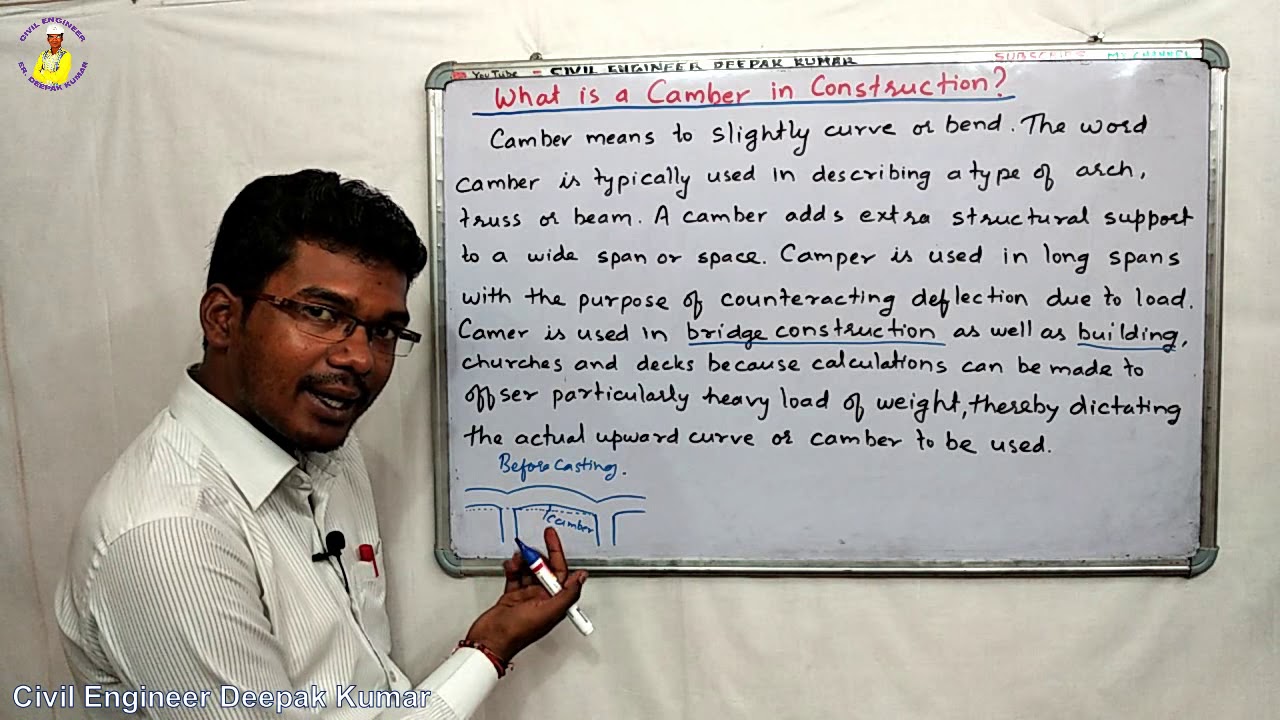 CIVIL ENGINEER
ER. DEEPAK KUMAR
YouTube - CIVIL ENGINEER DEEPAK KUMAR SUBSCRIBE MY CHANNEL
What is a Camber in Construction?
Camber means to slightly curve or bend. The word
camber is typically used in describing a type of arch,
truss or beam. A camber adds extra structural support
to a wide span or space. Camper is used in long spans
with the purpose of counteracting deflection due to load.
Camer is used in bridge construction as well as building,
churches and decks because calculations can be made to
offser particularly heavy load of weight, thereby dictating
the actual upward curve or camber to be used.
Before casting.
camber
Civil Engineer Deepak Kumar